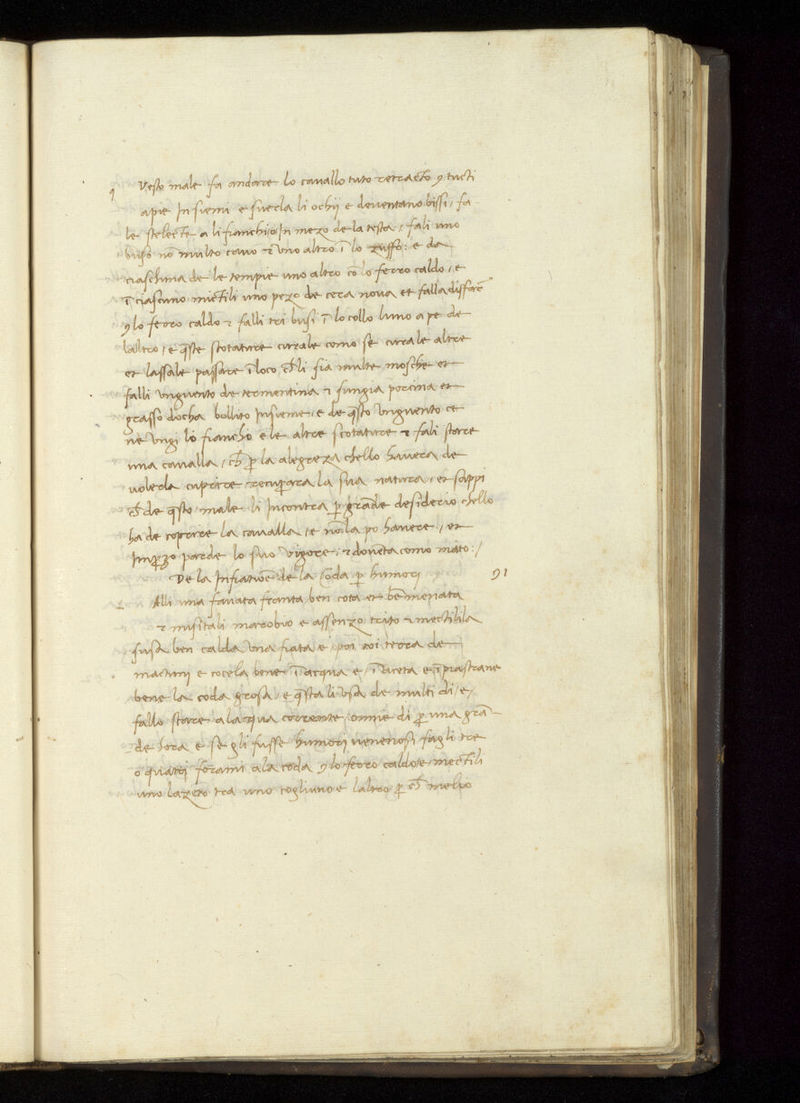 q Vesto male fa andare lo cauallo tuto retracto ꝯ tucti
apie Insiemi e fuerla li ochij e deuentano bissi / fa
le stelecte a li fianchi o In mezo de la testa / fali uno
buso nō multo cauo et uno altro ī lo zuffo: e da
ciaschuna de le tempie uno altro cō lo ferro caldo / e
ī ciascuno mictili uno pezo de cera noua et falla disfare
ꝯ lo ferro caldo et falli tri busi ī lo collo luno a pe de
laltro / e q̄ste scotature curale como se cura le altre
et lassale passare ī loco ch̄ li sia multe mosche et
falli unguento de termentina et sungia porcina et
grasso docha bollito Insieme / e de q̄sto unguento ce
ne ungi lo fiancho e le altre scotature et fali stare
una caualla / ch̄ ꝑ la alegreza chello hauera de
uolerla cuprire recuꝑara la sua natura / et sappi
ch̄ de q̄sto male li Incontra ꝑ grāde desiderio chello
ha de coprire la caualla / e nō la po hauere / et
Imꝑzo parde lo suo uigore / et doueta como mato: /
De la Infiatiōe de la coda ꝑ humori 91
Alli una fauata franta ben cota et bē menata
et mistali marobio e assenzo trito et mectilila
susa ben calda una fiata e / poi toi terra de
macuni e cocela bene ī acqua e / ī aceta e īpiastrane
bene la coda grosa / e q̄sta li usa de multi di / e /
fallo stare alaqua corrente / omne di ꝑ una grā
de hora e se gli fusse humori uenenosi fagli tre
o quatri forami ala coda ꝯ lo ferro caldo e / mectili
uno lazezo tra uno e laltro ꝑ ch̄ melio